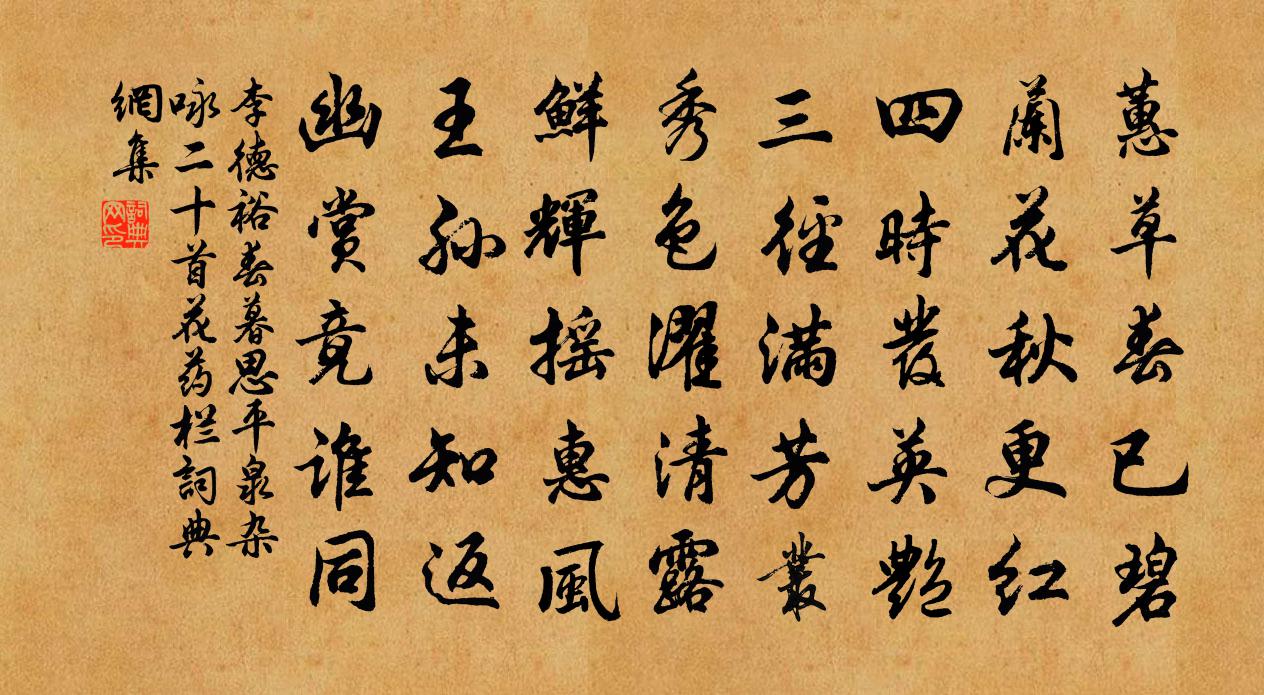 蕙草春已碧
蘭花秋更紅
四時發英艷
三徑滿芳叢
秀色濯清露
鮮輝搖惠風
王孫未知返
幽賞竟誰同
李德裕春暮思平泉杂
咏二十首花药栏詞典
網集
詞典
网印